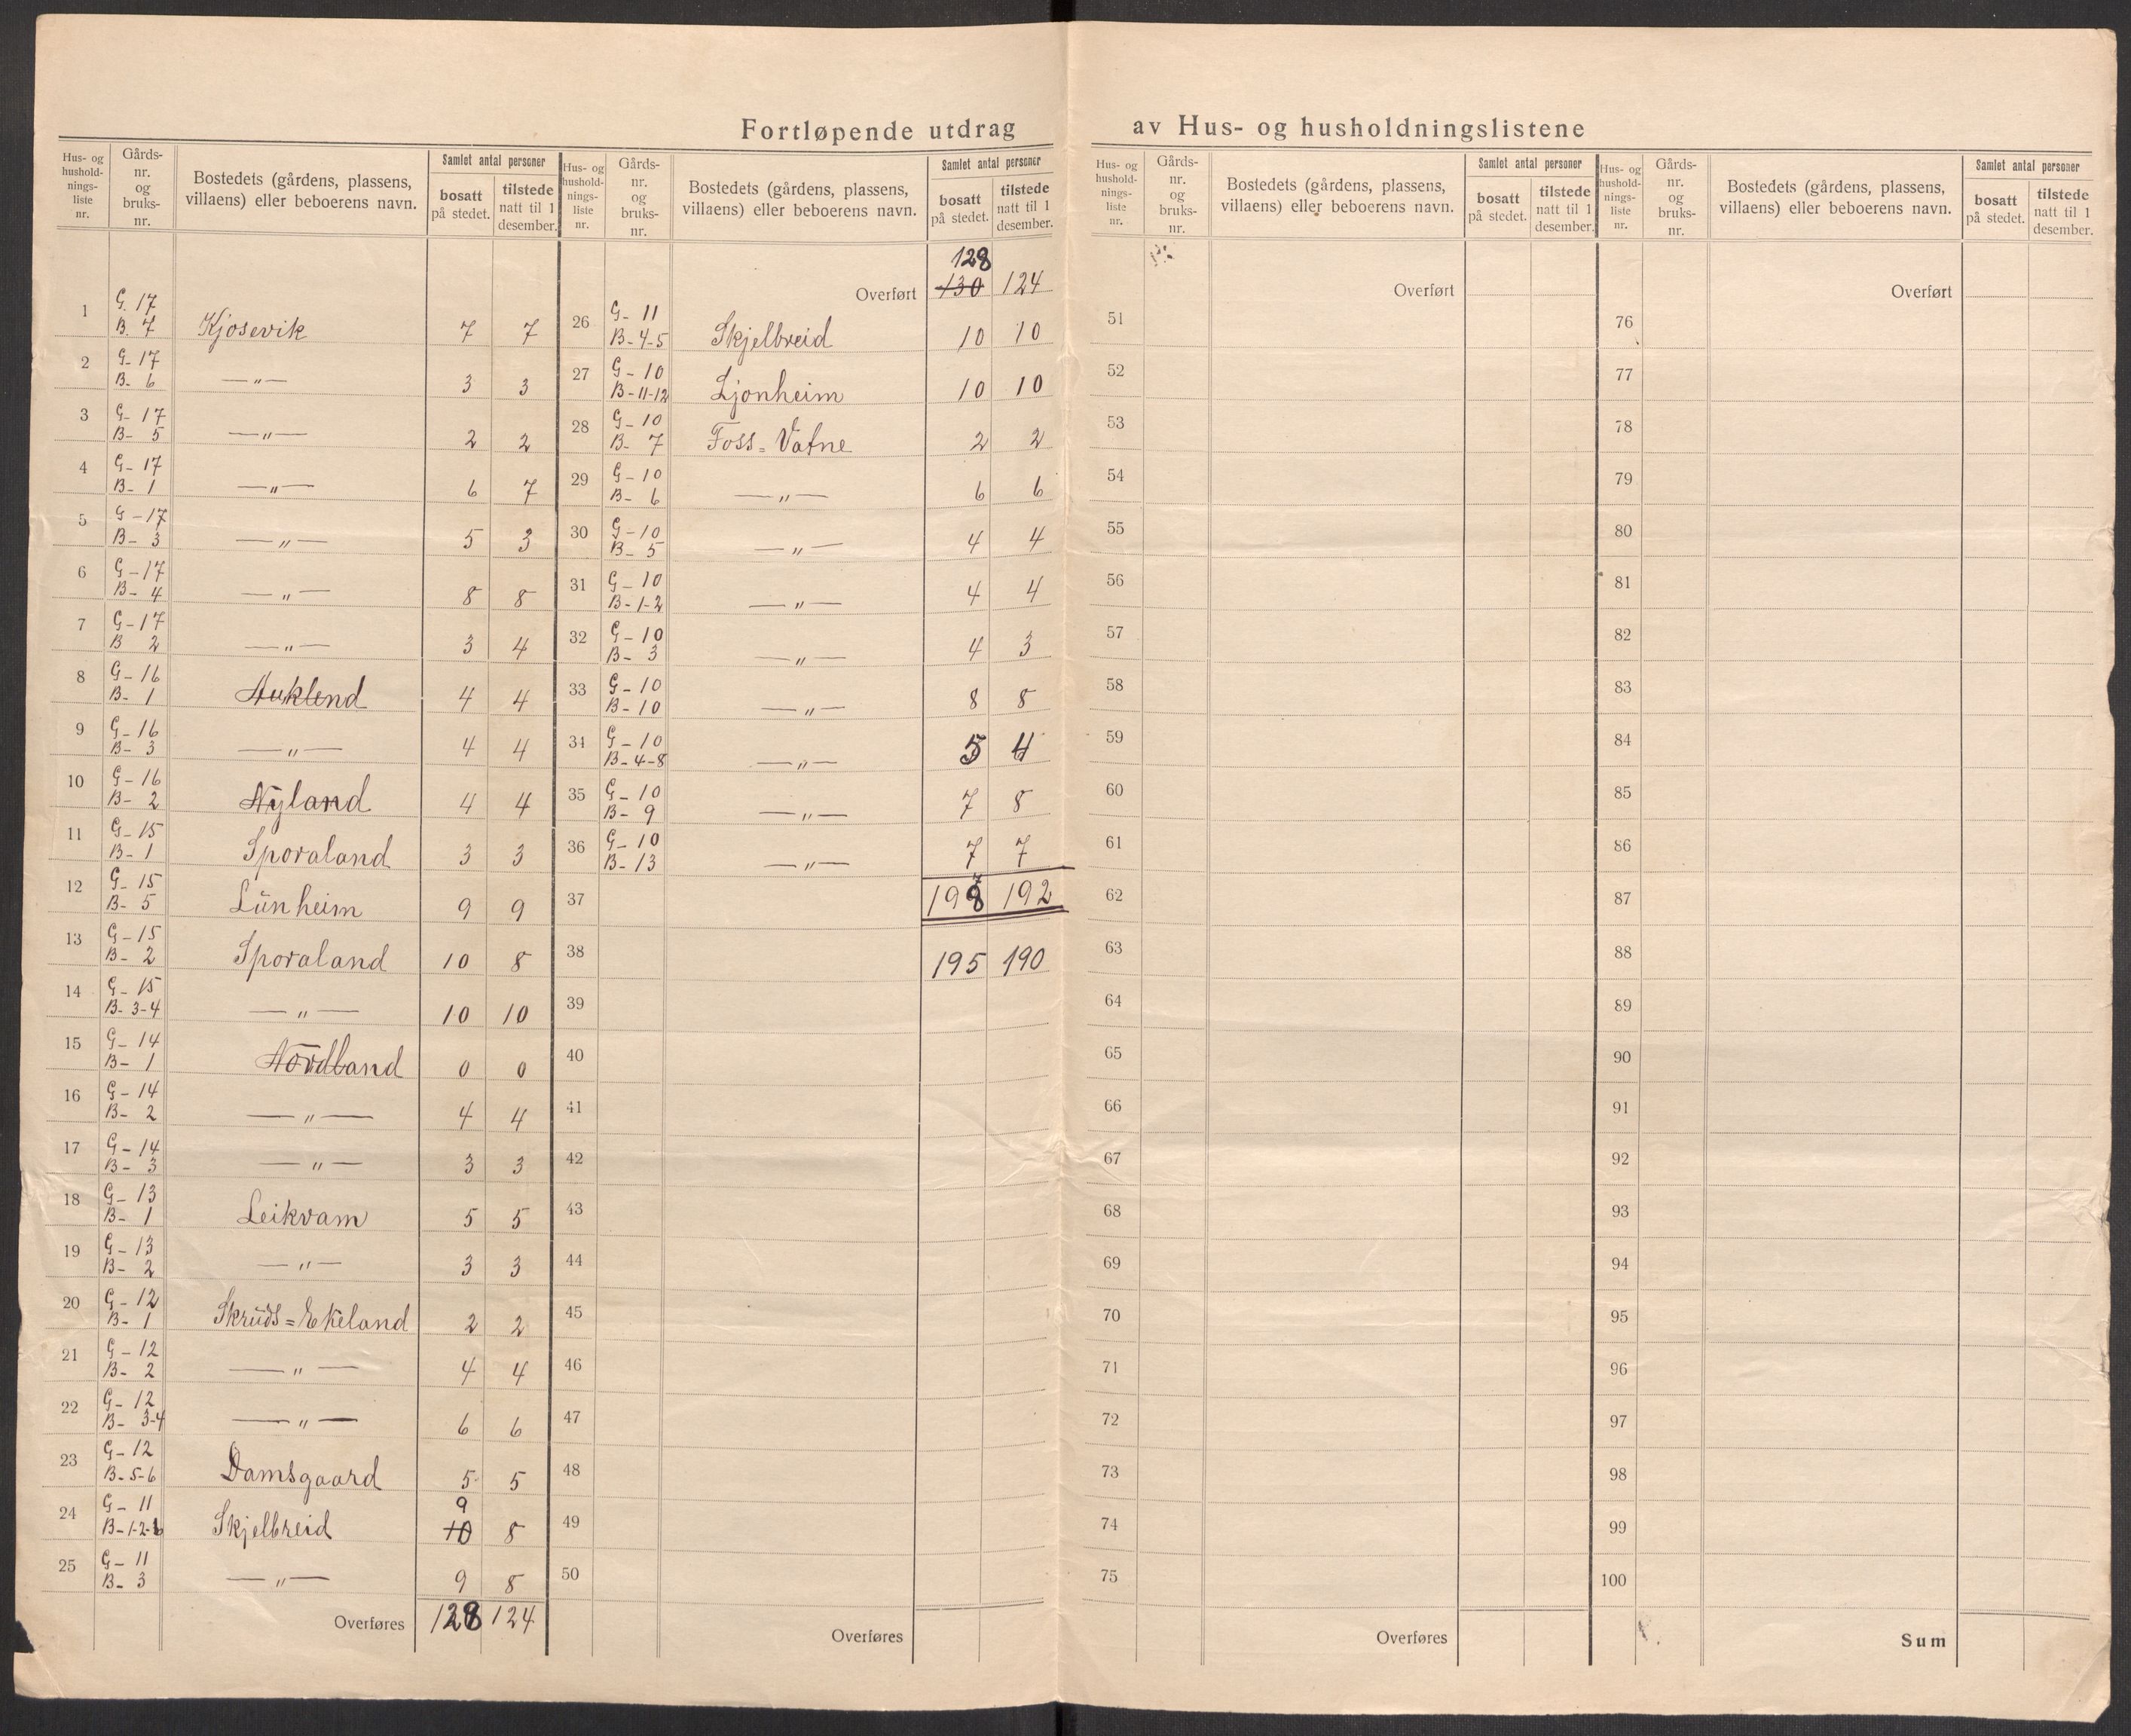 Fortløpende utdrag av Hus- og husholdningslistene
Hus- og husholdnings-liste nr. | Gårds-nr. og bruks-nr. | Bostedets (gårdens, plassens, villaens) eller beboerens navn. | Samlet antal personer | bosatt på stedet. | tilstede natt til 1 desember.
1 G. 17 B. 7 Kjosevik 7 7
2 G- 17 B- 6 — " — 3 3
3 G- 17 B- 5 — " — 2 2
4 G- 17 B- 1 — " — 6 7
5 G- 17 B- 3 — " — 5 3
6 G- 17 B- 4 — " — 8 8
7 G- 17 B 2 — " — 3 4
8 G- 16 B- 1 Auklend 4 4
9 G- 16 B- 3 — " — 4 4
10 G- 16 B- 2 Nyland 4 4
11 G- 15 B- 1 Sporaland 3 3
12 G- 15 B- 5 Lünheim 9 9
13 G- 15 B- 2 Sporaland 10 8
14 G- 15 B- 3-4 — " — 10 10
15 G- 14 B- 1 Nordland 0 0
16 G- 14 B- 2 — " — 4 4
17 G- 14 B- 3 — " — 3 3
18 G- 13 B- 1 Leikvam 5 5
19 G- 13 B- 2 — " — 3 3
20 G- 12 B- 1 Skrüds=Ekeland 2 2
21 G- 12 B- 2 — " — 4 4
22 G- 12 B- 3-4 — " — 6 6
23 G- 12 B- 5-6 Damsgaard 5 5
9
24 G- 11 B- 1-2-6 Skjelbreid 10 8
25 G- 11 B- 3 — " — 9 8
Overføres 128 124
Hus- og husholdnings-liste nr. | Gårds-nr. og bruks-nr. | Bostedets (gårdens, plassens, villaens) eller beboerens navn. | Samlet antal personer | bosatt på stedet. | tilstede natt til 1 desember.
128
Overført 130 124
26 G- 11 B- 4-5 Skjelbreid 10 10
27 G- 10 B- 11-12 Ljonheim 10 10
28 G- 10 B- 7 Foss=Vatne 2 2
29 G- 10 B- 6 — " — 6 6
30 G- 10 B- 5 — " — 4 4
31 G- 10 B- 1-2 — " — 4 4
32 G- 10 B- 3 — " — 4 3
33 G- 10 B- 10 — " — 8 8
34 G- 10 B- 4-8 — " — 5 4
35 G- 10 B- 9 — " — 7 8
36 G- 10 B- 13 — " — 7 7
37 198 192
38 195 190
39
40
41
42
43
44
45
46
47
48
49
50
Overføres
Hus- og husholdnings-liste nr. | Gårds-nr. og bruks-nr. | Bostedets (gårdens, plassens, villaens) eller beboerens navn. | Samlet antal personer | bosatt på stedet. | tilstede natt til 1 desember.
Overført
51
52
53
54
55
56
57
58
59
60
61
62
63
64
65
66
67
68
69
70
71
72
73
74
75
Overføres
Hus- og husholdnings-liste nr. | Gårds-nr. og bruks-nr. | Bostedets (gårdens, plassens, villaens) eller beboerens navn. | Samlet antal personer | bosatt på stedet. | tilstede natt til 1 desember.
Overført
76
77
78
79
80
81
82
83
84
85
86
87
88
89
90
91
92
93
94
95
96
97
98
99
100
Sum